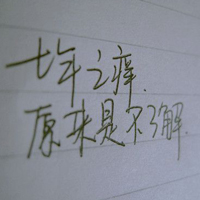 七年之痒.
原来是不了解.